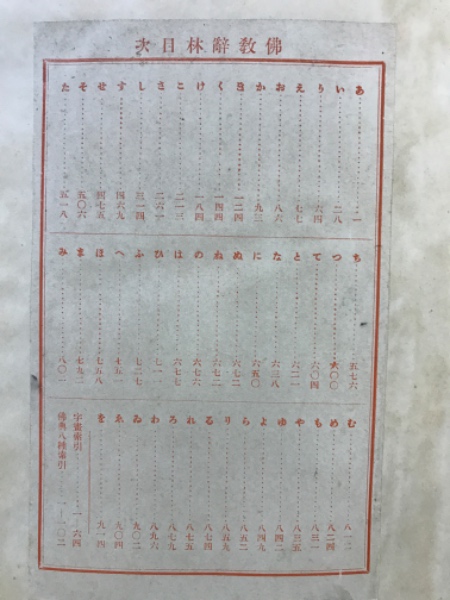 佛教辭林目次
あ……一
い……二八
う……六四
え……七七
お……八六
か……九三
き……一二四
く……一四四
け……一八四
こ……二一三
さ……二六一
し……三一四
す……四六九
せ……四七五
そ……五〇六
た……五一八
ち……五七六
つ……六〇〇
て……六〇四
と……六二一
な……六三八
に……六五〇
ぬ……六七二
ね……六七二
の……六七六
は……六七七
ひ……七一一
ふ……七二七
へ……七五一
ほ……七五八
ま……七九二
み……八〇一
む……八一二
め……八二四
も……八三一
や……八三五
ゆ……八四二
よ……八四九
ら……八五二
り……八五九
る……八七四
れ……八七五
ろ……八七九
わ……八九六
ゐ……九〇二
ゑ……九〇四
を……九一四
字畫索引……一—六四
佛典八種索引……一—一〇二